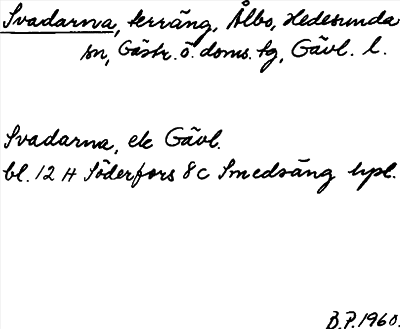 Svadarna, terräng, Ålbo, Hedesunda
sn, Gästr. ö. doms. tg, Gävl. l.
Svadarna, ek Gävl.
bl. 12 H Söderfors 8 c Smedsäng hpl.
B.P. 1960.